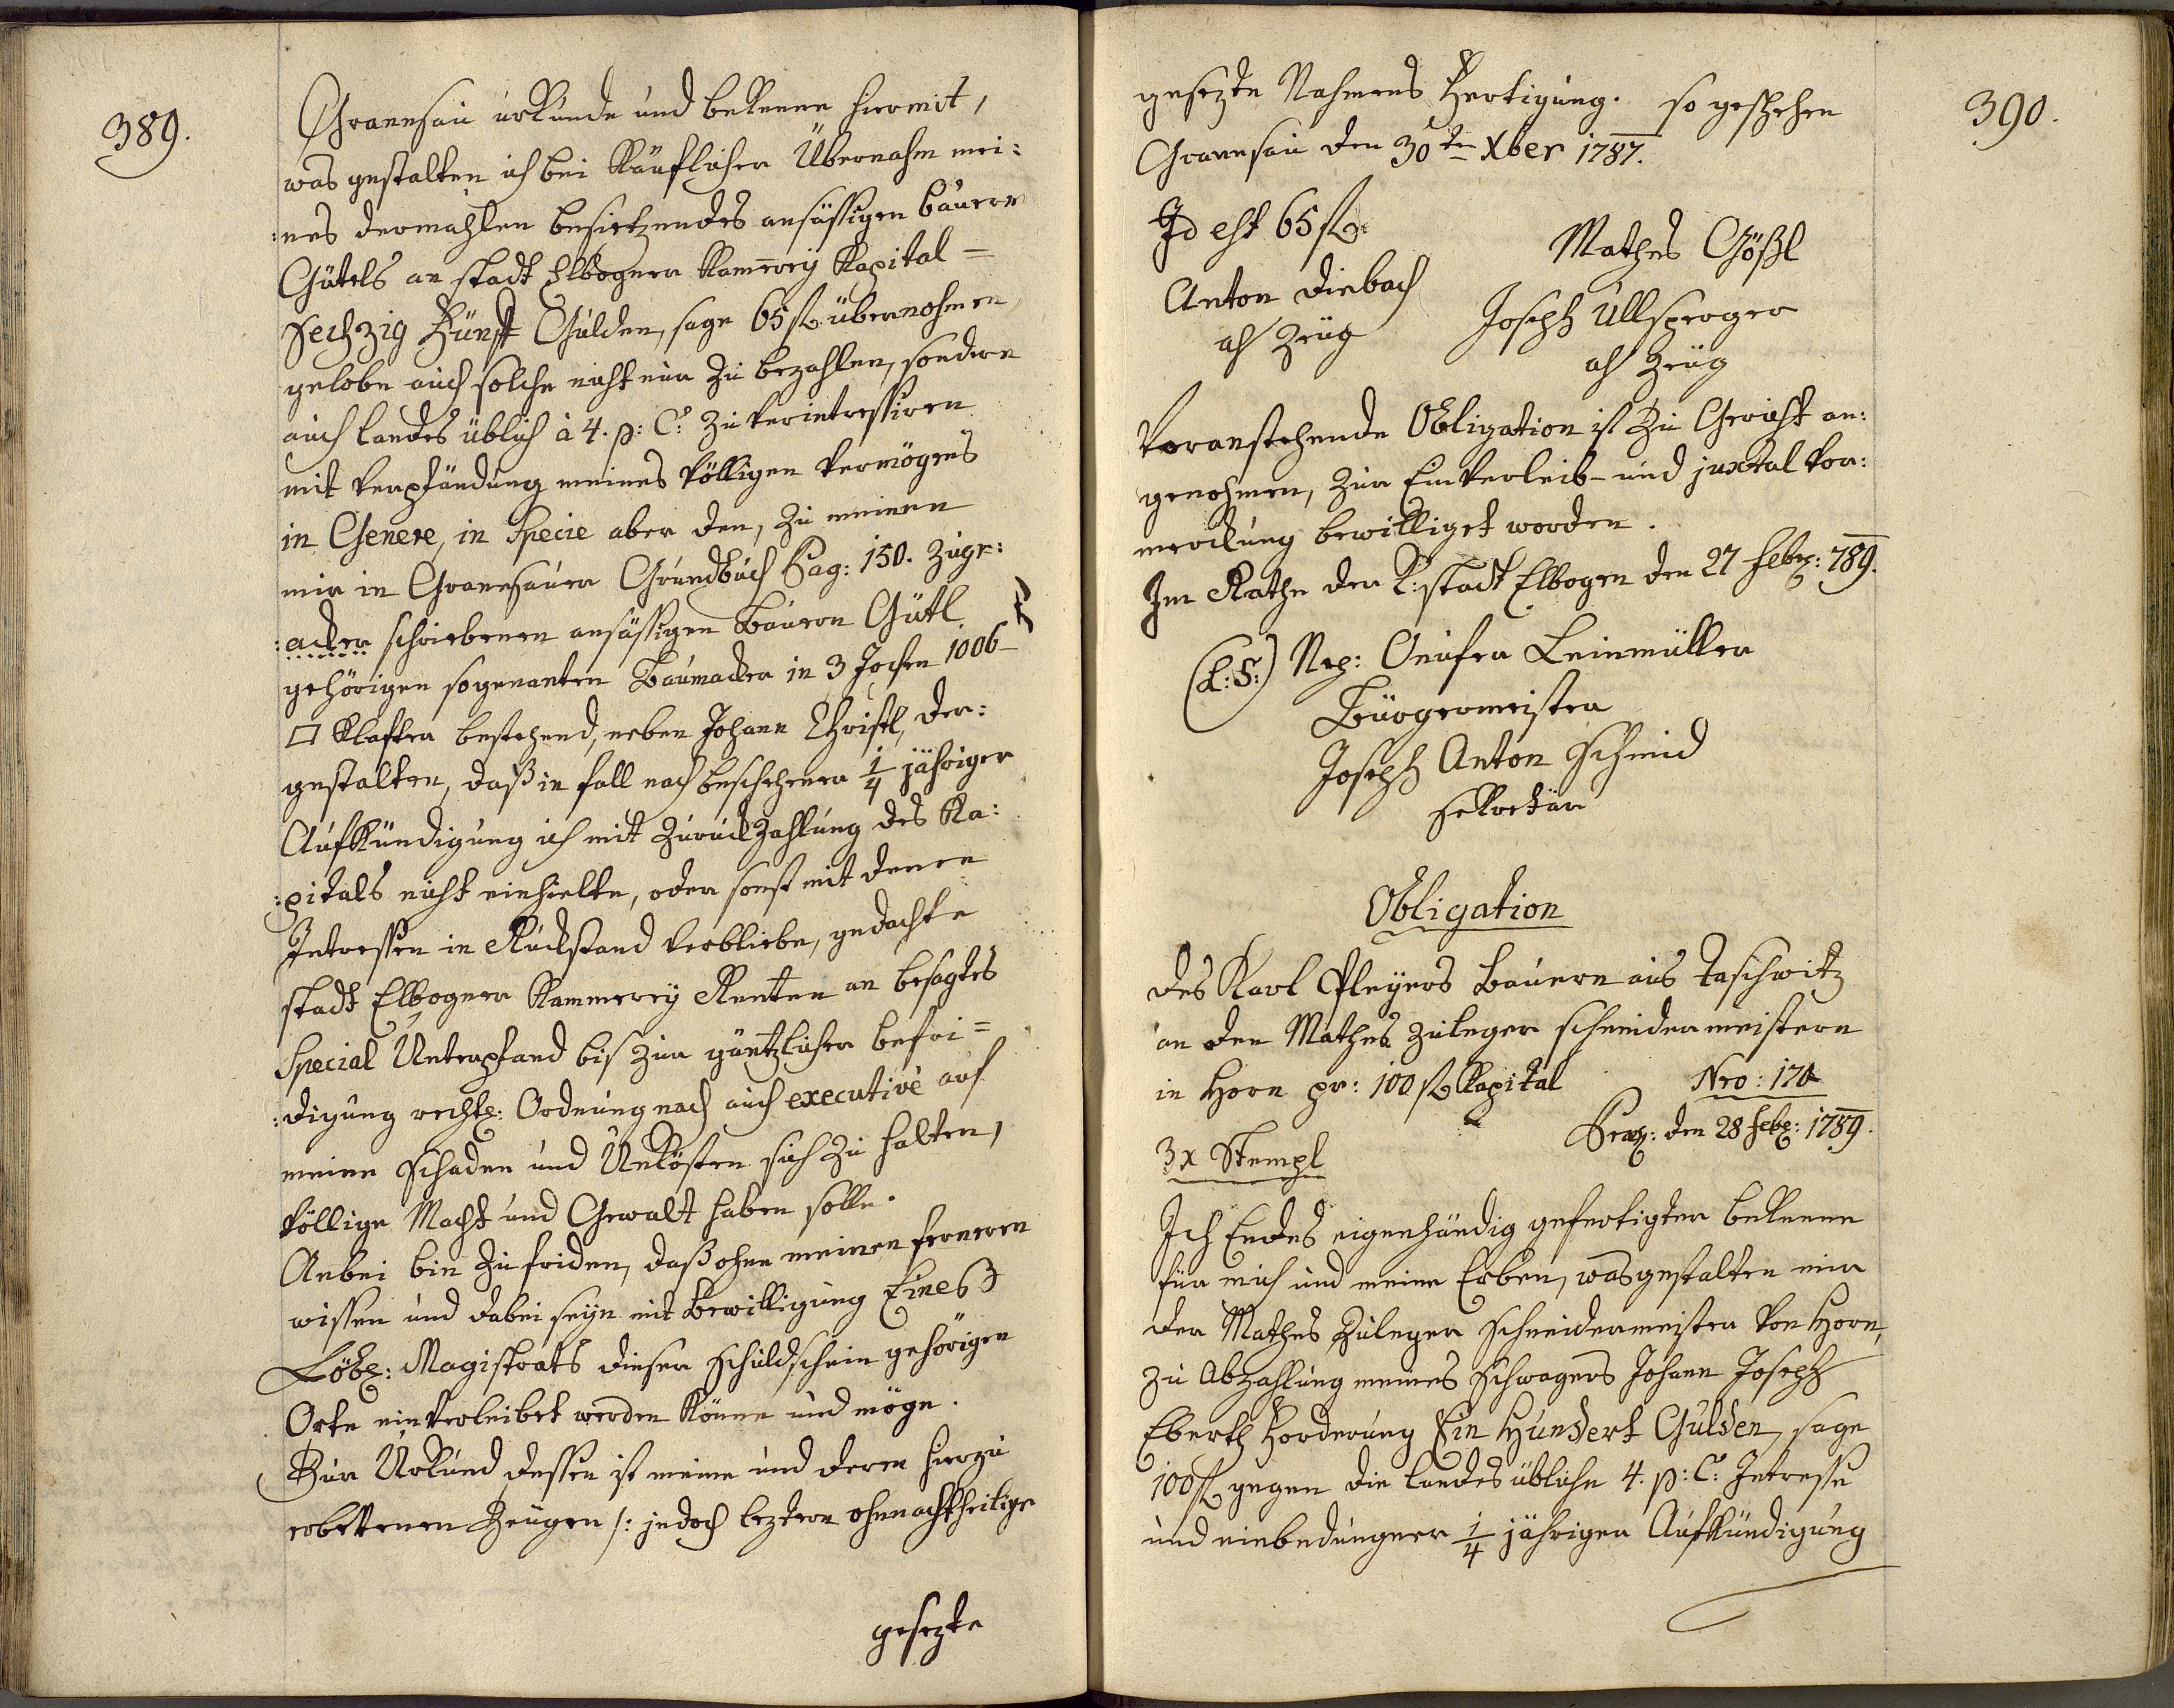 389.
Granesau urkunde und bekenne hiermit,
was gestalten ich bei Käuflicher Übernahm mei:
:nes dermahlen besietzendes ansässigen Bauern
Gütels an stadt Elbogner Kammerey Kapital =
Sechzig Fünf Gulden, sage 65 fl. übernohmen,
gelobe auch solche nicht nur zu bezahlen, sondern
auch landes üblich à 4. p: C: zu verintressiren
mit Verpfändung meines völligen Vermögens
in Genere, in Specie aber den, zu meinen
mir in Granesauer Grundbuch Pag: 150. zuge:
:acker schriebenen ansässigen Bauern Gütl
gehörigen sogenanten Baumacker in 3 Jochen 1006
□ Klafter bestehend, neben Johann Christl, der:
gestalten, daß in fall nach beschehener 1/4 jähriger
Aufkündigung ich mit Zuruckzahlung des Ka:
:pitals nicht einhielte, oder sonst mit denen
Intressen in Rückstand verbliebe, gedachte
stadt Elbogner Kammerey Renten an besagtes
Special Unterpfand bis zur gäntzlicher befri=
:digung rechtl: Ordnung nach auch executivè auf
meine Schaden und Unkösten sich zu halten,
völlige Macht und Gewalt haben solle.
Anbei bin zu friden, daß ohne meinen ferneren
wissen und dabei seyn mit Bewilligung Eines
Löbl: Magistrats dieser Schuldschein gehörigen
Orte einverleibet werden könne und möge.
Zur Urkund dessen ist meine und deren hierzu
erbettenen Zeugen /: jedoch leztern ohnnachtheilige
gesezte
390.
gesezte Nahmens Fertigung. so geschehen
Granesau den 30ten Xber 1787.
Id est 65 fl.
Mathes Gößl
Anton Diebach
als Zeug
Joseph Ullsperger
als Zeug
Voranstehende Obligation ist zu Gericht an:
genohmen, zur Einverleib- und juxtal vor:
merckung bewilliget worden.
Im Rathe der K: stadt Elbogen den 27 Feb: 789.
(L:S:) Nep: Onufer Leinmüller
Bürgermeister
Joseph Anton Schmid
Sekretär
Obligation
des Karl Pleyers Bauern aus Taschwitz
an den Mathes Zuleger Schneidermeistern
in Horn pr: 100 fl Kapital
Nro: 170
3x Stempl
Praes: den 28 Feb: 1789.
Ich Endes eigenhändig gefertigter bekenne
für mich und meine Erben, was gestalten mir
der Mathes Zuleger Schneidermeister von Horn,
zu Abzahlung meines Schwagers Johann Joseph
Eberth Forderung Ein Hundert Gulden, sage
100 fl gegen die landes übliche 4. p: C: Intresse
und einbedungner 1/4 jähriger Aufkündigung